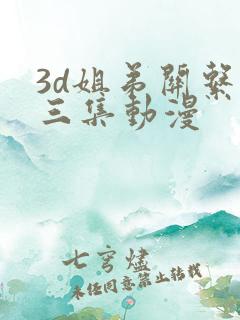 3d姐弟關繫
三集動漫
七穹燼
未经同意禁止转载